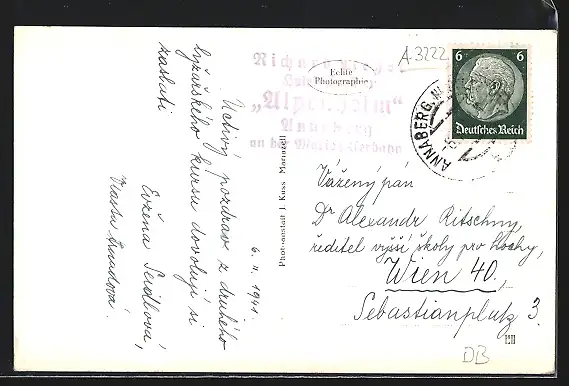 Uctivý pozdrav z druhého
lyžařského kursu dovolují si
zaslati
6. II. 1941.
Evžena Seidlová,
Vlasta
Echte
Photographie
Richard
„Alpenheim"
Annaberg
an der Mariazellerbahn
Phot-anstalt J. Kuss Mariazell
A 3222
6 6
Deutsches Reich
ANNABERG
Vážený pán
Dr Alexandr Ritschny,
ředitel vyšší školy pro hochy,
Wien 40,
Sebastianplatz 3.
DB